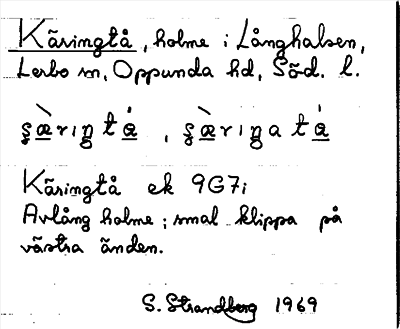 Käringtå, holme i Långhalsen,
Lerbo sn, Oppunda hd, Söd. l.
ʂæ̀riŋtá, ʂæ̀riŋatá
Käringtå ek 9G7i
Avlång holme; smal klippa på
västra änden.
S. Strandberg 1969